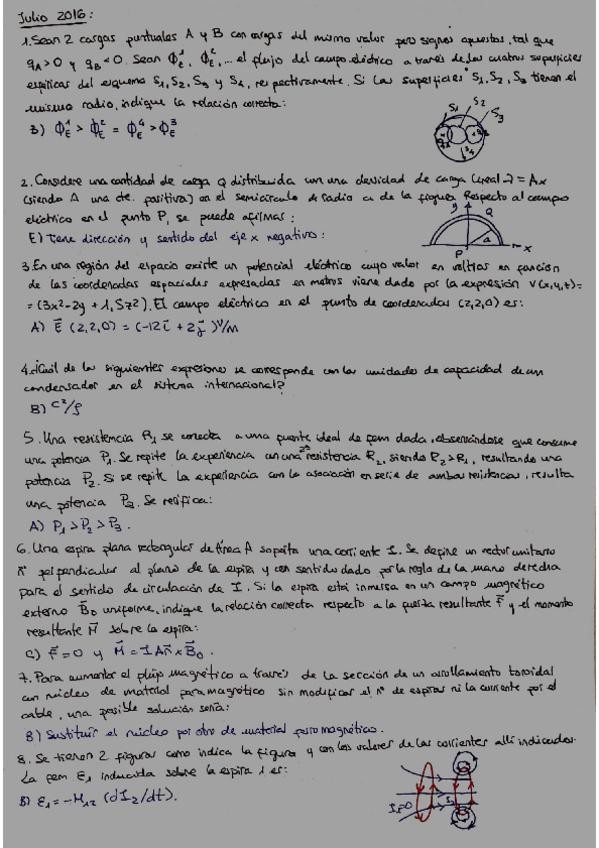 Julio 2016:
1. Sean 2 cargas puntuales A y B con cargas del mismo valor pero signos opuestos, tal que
qA>0 y qB<0. Sean ΦE¹, ΦE², ... el flujo del campo eléctrico a través de las cuatro superficies
esféricas del esquema S1, S2, S3 y S4, respectivamente. Si las superficies S1, S2, S3 tienen el
mismo radio, indique la relación correcta:
B) ΦE¹ > ΦE² = ΦE⁴ > ΦE³
S1 S2 S3 S4
2. Considere una cantidad de carga Q distribuida con una densidad de carga lineal λ = Ax
(siendo A una cte. positiva) en el semicírculo de radio a de la figura. Respecto al campo
eléctrico en el punto P, se puede afirmar:
E) Tiene dirección y sentido del eje x negativo:
y Q a P x
3. En una región del espacio existe un potencial eléctrico cuyo valor en voltios en función
de las coordenadas espaciales expresadas en metros viene dado por la expresión V(x,y,z)=
= (3x²-2y+1,5z²). El campo eléctrico en el punto de coordenadas (2,2,0) es:
A) E⃗ (2,2,0) = (-12i⃗ + 2j⃗) V/m
4. ¿Cuál de las siguientes expresiones se corresponde con las unidades de capacidad de un
condensador en el sistema internacional?
B) C²/J
5. Una resistencia R1 se conecta a una fuente ideal de fem dada, observándose que consume
una potencia P1. Se repite la experiencia con una 2ª resistencia R2, siendo R2>R1, resultando una
potencia P2. Si se repite la experiencia con la asociación en serie de ambas resistencias, resulta
una potencia P3. Se verifica:
A) P1 > P2 > P3.
6. Una espira plana rectangular de área A soporta una corriente I. Se define un vector unitario
n⃗ perpendicular al plano de la espira y con sentido dado por la regla de la mano derecha
para el sentido de circulación de I. Si la espira está inmersa en un campo magnético
externo B⃗0 uniforme, indique la relación correcta respecto a la fuerza resultante F⃗ y el momento
resultante M⃗ sobre la espira:
C) F⃗ = 0 y M⃗ = I A n⃗ x B⃗0.
7. Para aumentar el flujo magnético a través de la sección de un arrollamiento toroidal
con núcleo de material paramagnético sin modificar el nº de espiras ni la corriente por el
cable, una posible solución sería:
B) Sustituir el núcleo por otro de material ferromagnético.
8. Se tienen 2 figuras como indica la figura y con los valores de las corrientes allí indicados.
La fem ε1 inducida sobre la espira 1 es:
B) ε1 = -M12 (dI2/dt).
I1=0